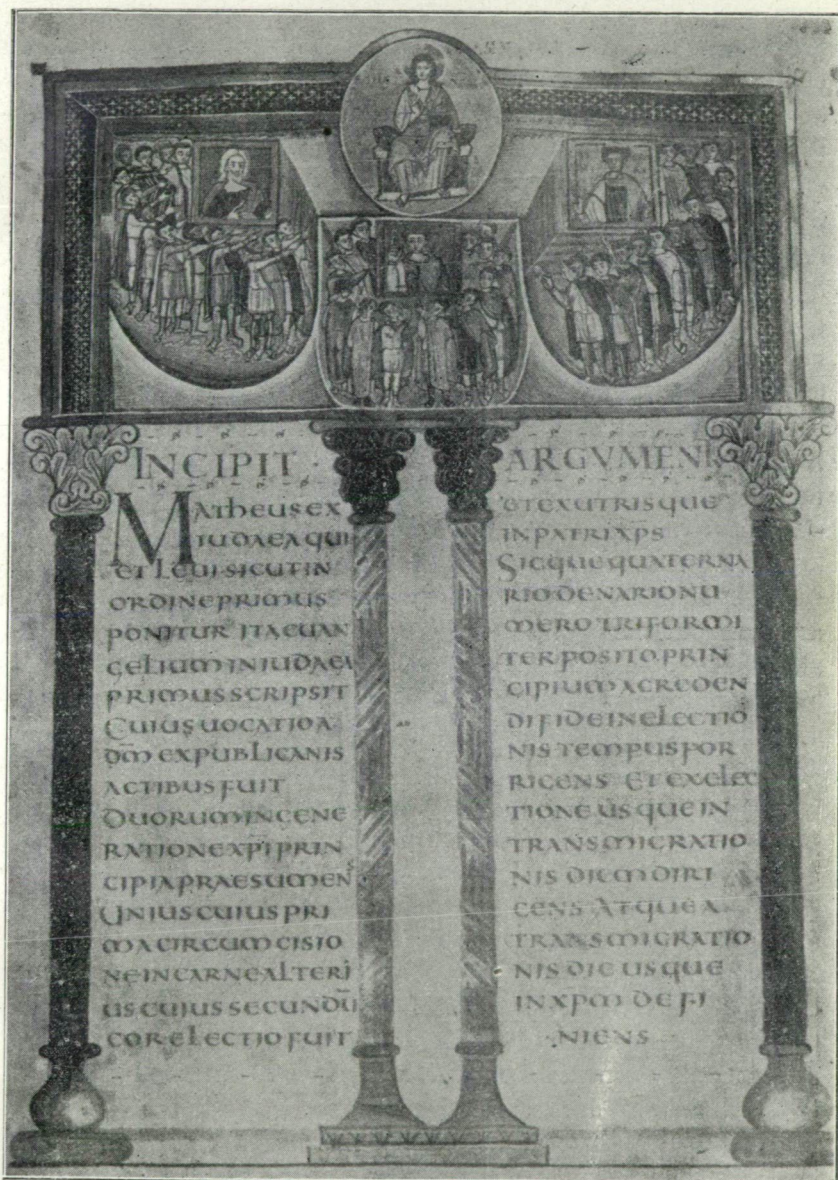 INCIPIT
MATHEUS EX
IUDAEA QUI
ET LEUI SICUT IN
ORDINE PRIMUS
PONITUR ITA EUAN
GELIUM IN IUDAEA
PRIMUS SCRIPSIT
CUIUS UOCATIO A
DM̅ EX PUBLICANIS
ACTIBUS FUIT
DUORUM IN GENE
RATIONE XP̅I PRIN
CIPIA PRAESUMENS
UNIUS CUIUS PRI
MA CIRCUMCISIO
NE IN CARNE ALTERI
US CUIUS SECUNDŪ
COR ELECTIO FUIT
ARGVMENT
ET EX UTRISQUE
IN PATRI XP̅S
SICQUE QUATERNA
RIO DENARIO NU
MERO TRIFORMI
TER POSITO PRIN
CIPIUM A CREDEN
DI FIDE IN ELECTIO
NIS TEMPUS POR
RIGENS ET EX ELEC
TIONE USQUE IN
TRANSMIGRATIO
NIS DIEM DIRI
GENS ATQUE A
TRANSMIGRATIO
NIS DIE USQUE
IN XP̅M DEFI
NIENS